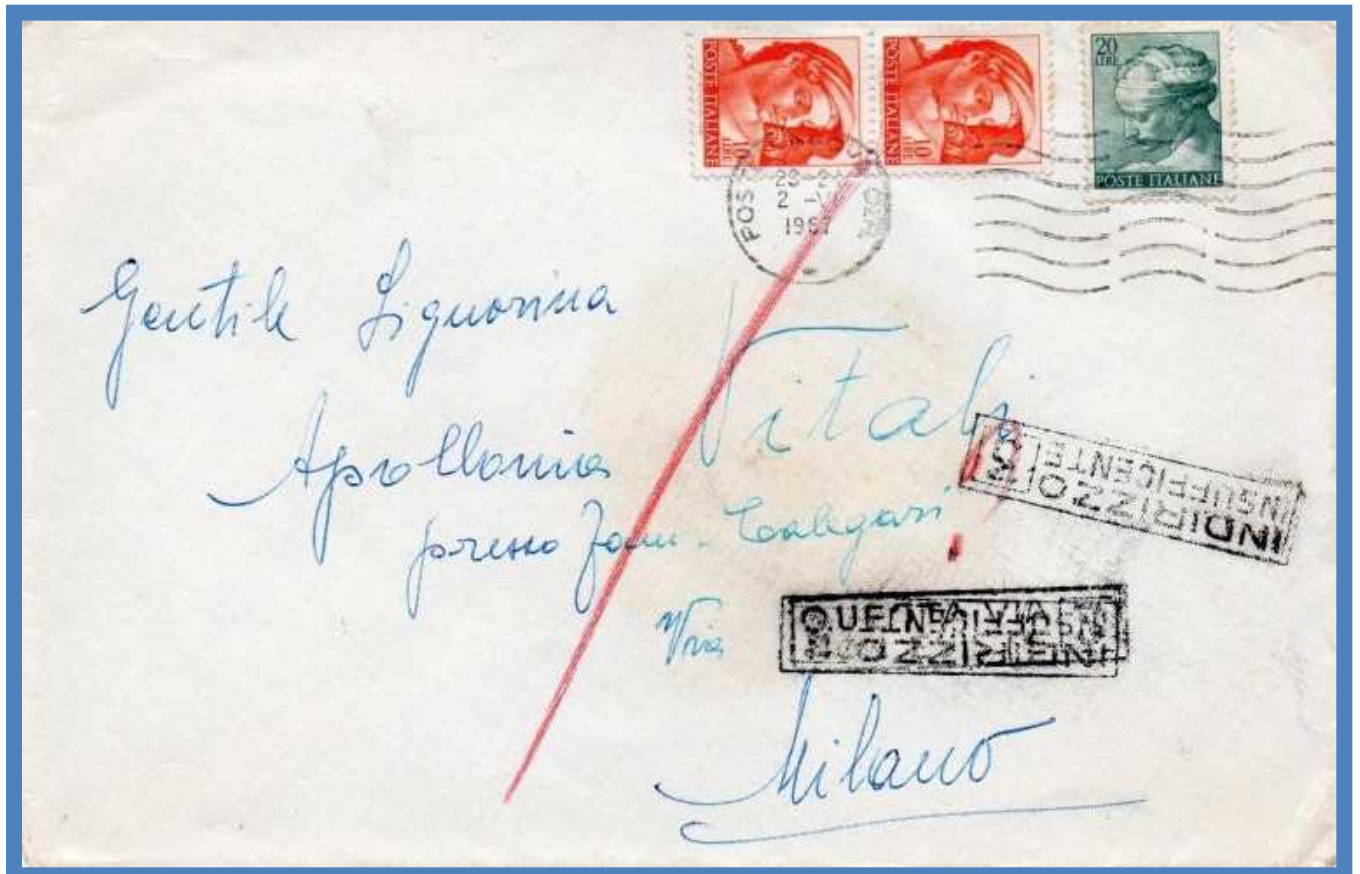 POSTE ITALIANE
10 LIRE
POSTE ITALIANE
10 LIRE
20 LIRE
POSTE ITALIANE
2 - V
1967
Gentile Signorina
Apollonia Vitali
presso Fam. Calegari
Via
Milano
INDIRIZZO
INSUFFICENTE